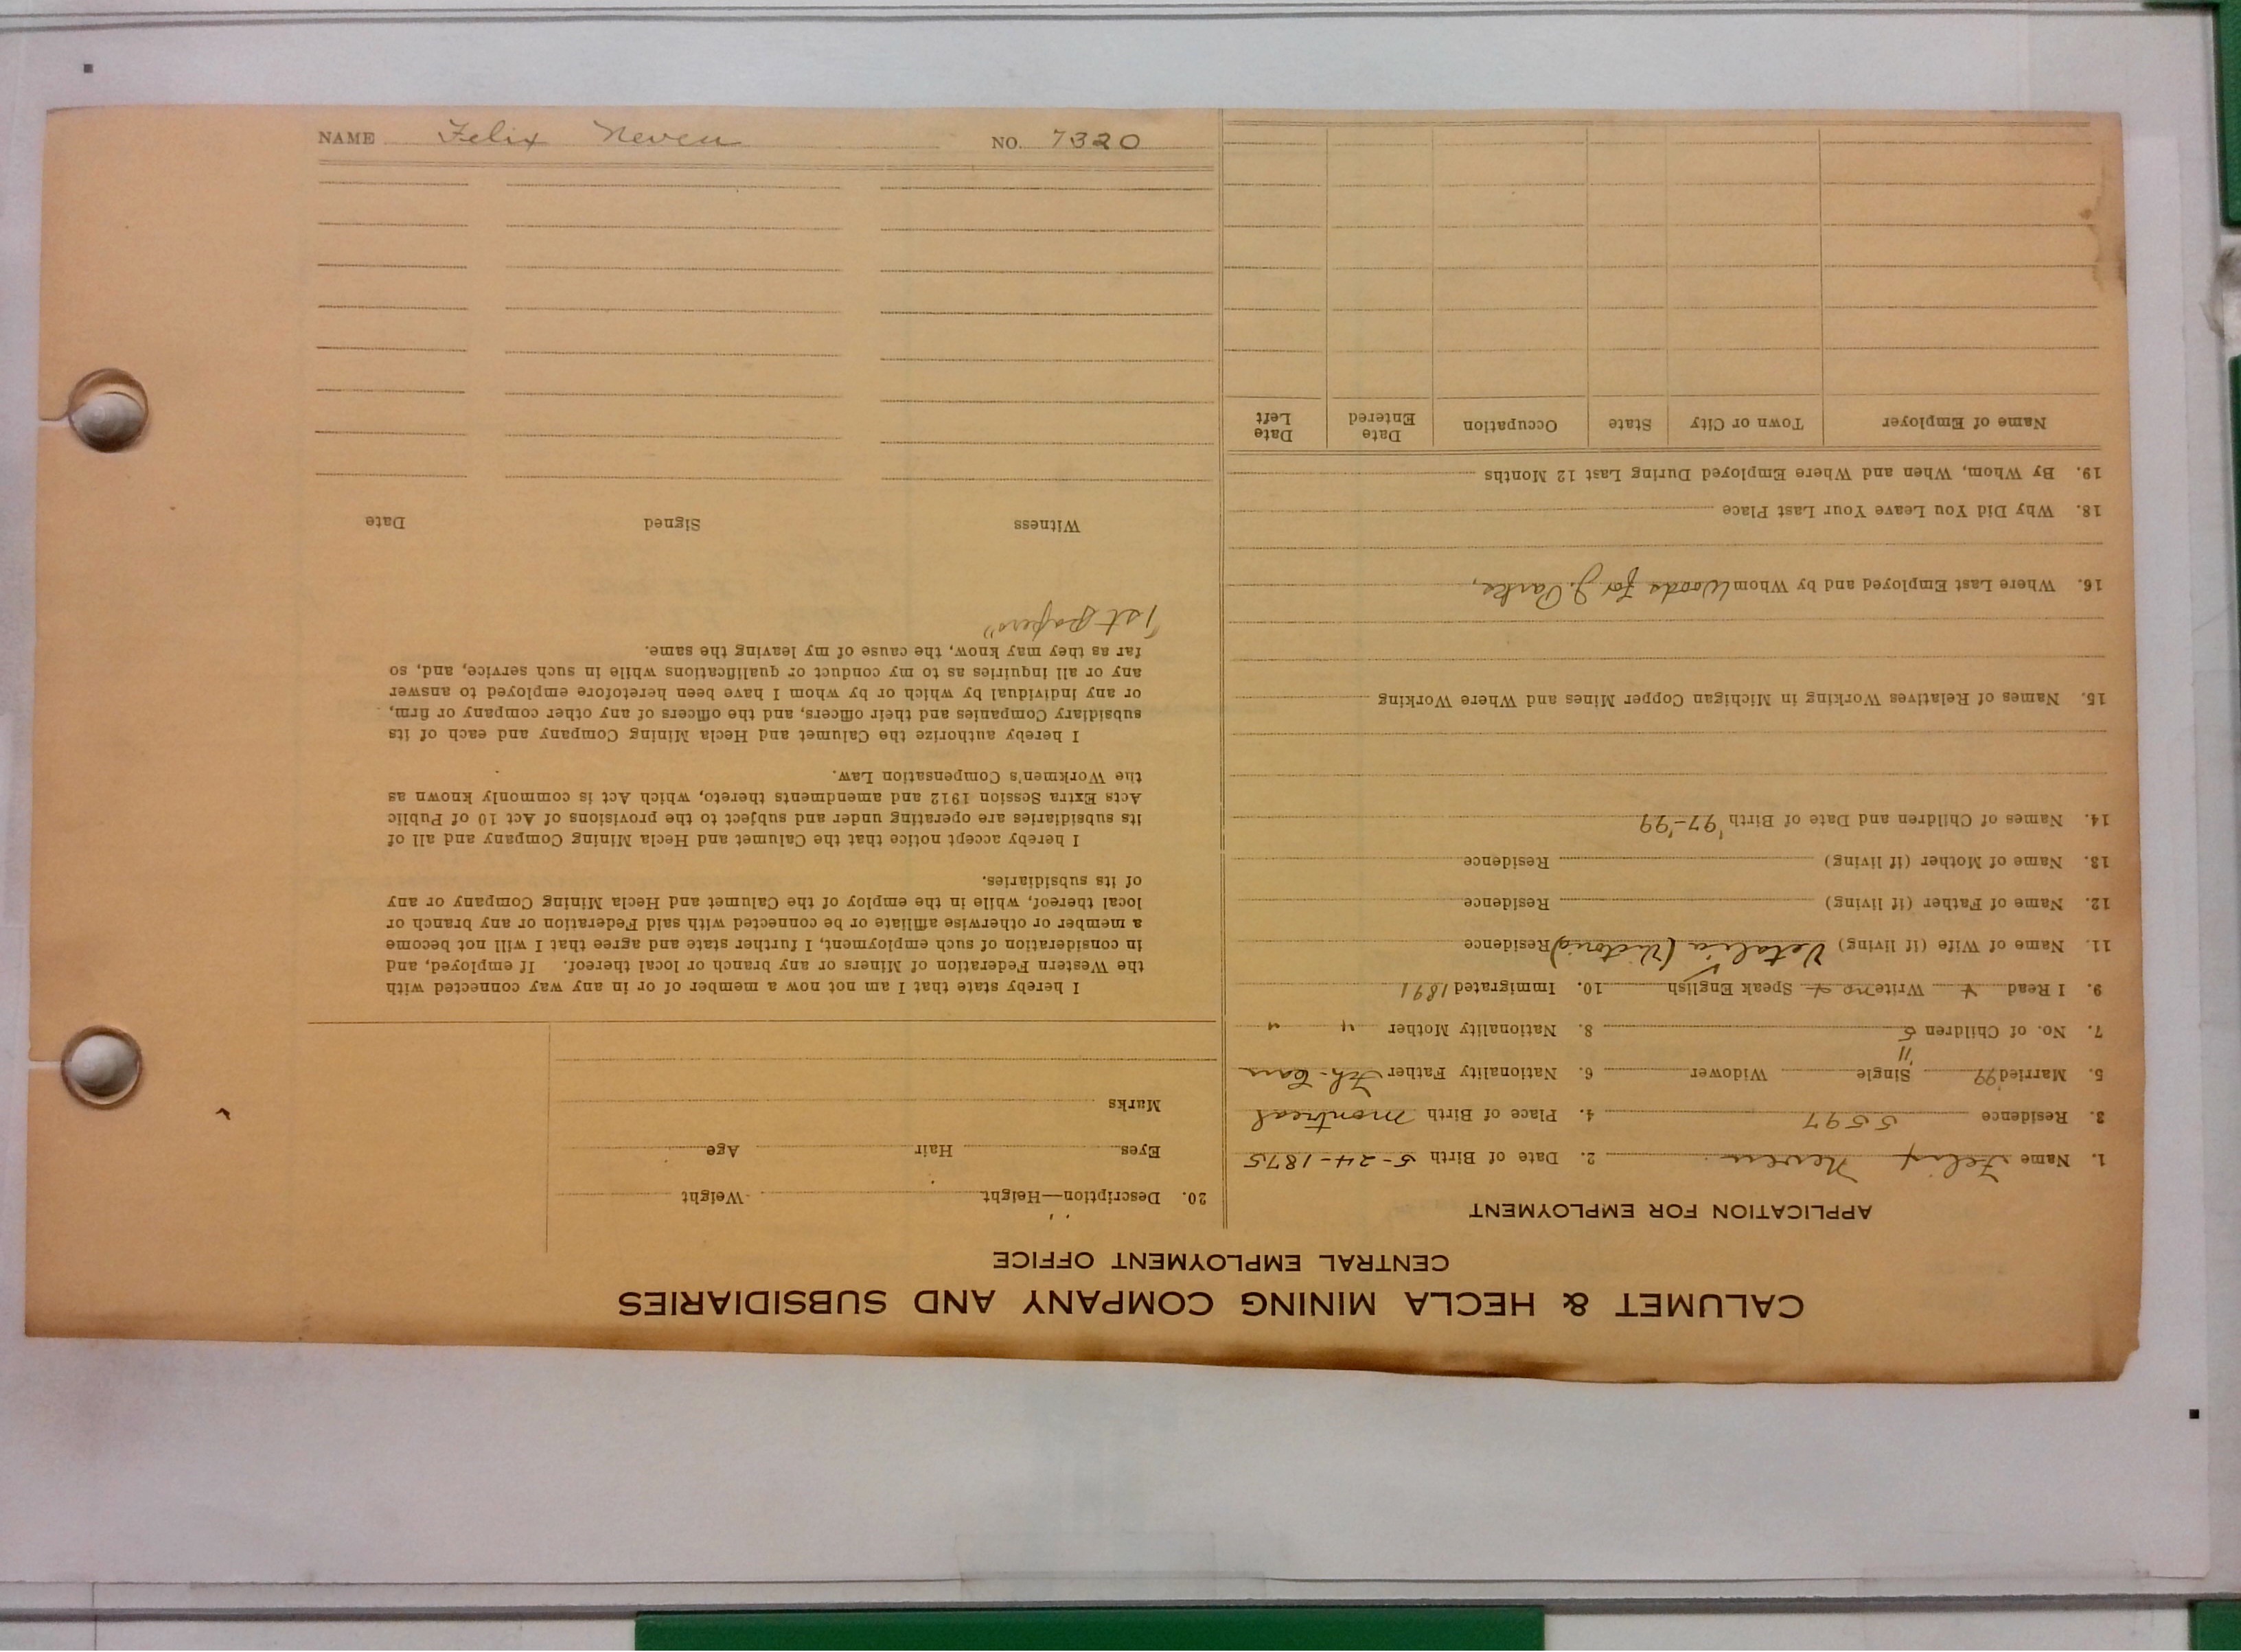 CALUMET & HECLA MINING COMPANY AND SUBSIDIARIES
CENTRAL EMPLOYMENT OFFICE
APPLICATION FOR EMPLOYMENT
1. Name Felix Neveu 2. Date of Birth 5-24-1875
3. Residence 5597 4. Place of Birth Montreal
5. Married '99 Single Widower 6. Nationality Father Fch-Can
"
7. No. of Children 5 8. Nationality Mother " "
9. I Read + Write no + Speak English 10. Immigrated 1891
11. Name of Wife (if living) (Victoria) Residence
12. Name of Father (if living) Residence
13. Name of Mother (if living) Residence
14. Names of Children and Date of Birth '97-'99
15. Names of Relatives Working in Michigan Copper Mines and Where Working
16. Where Last Employed and by Whom Woods for J. Parks,
18. Why Did You Leave Your Last Place
19. By Whom, When and Where Employed During Last 12 Months
Name of Employer Town or City State Occupation Date Entered Date Left
20. Description—Height Weight
Eyes Hair Age
Marks
I hereby state that I am not now a member of or in any way connected with
the Western Federation of Miners or any branch or local thereof. If employed, and
in consideration of such employment, I further state and agree that I will not become
a member or otherwise affiliate or be connected with said Federation or any branch or
local thereof, while in the employ of the Calumet and Hecla Mining Company or any
of its subsidiaries.
I hereby accept notice that the Calumet and Hecla Mining Company and all of
its subsidiaries are operating under and subject to the provisions of Act 10 of Public
Acts Extra Session 1912 and amendments thereto, which Act is commonly known as
the Workmen's Compensation Law.
I hereby authorize the Calumet and Hecla Mining Company and each of its
subsidiary Companies and their officers, and the officers of any other company or firm,
or any individual by which or by whom I have been heretofore employed to answer
any or all inquiries as to my conduct or qualifications while in such service, and, so
far as they may know, the cause of my leaving the same.
"1st papers"
Witness Signed Date
NAME Felix Neveu NO. 7320